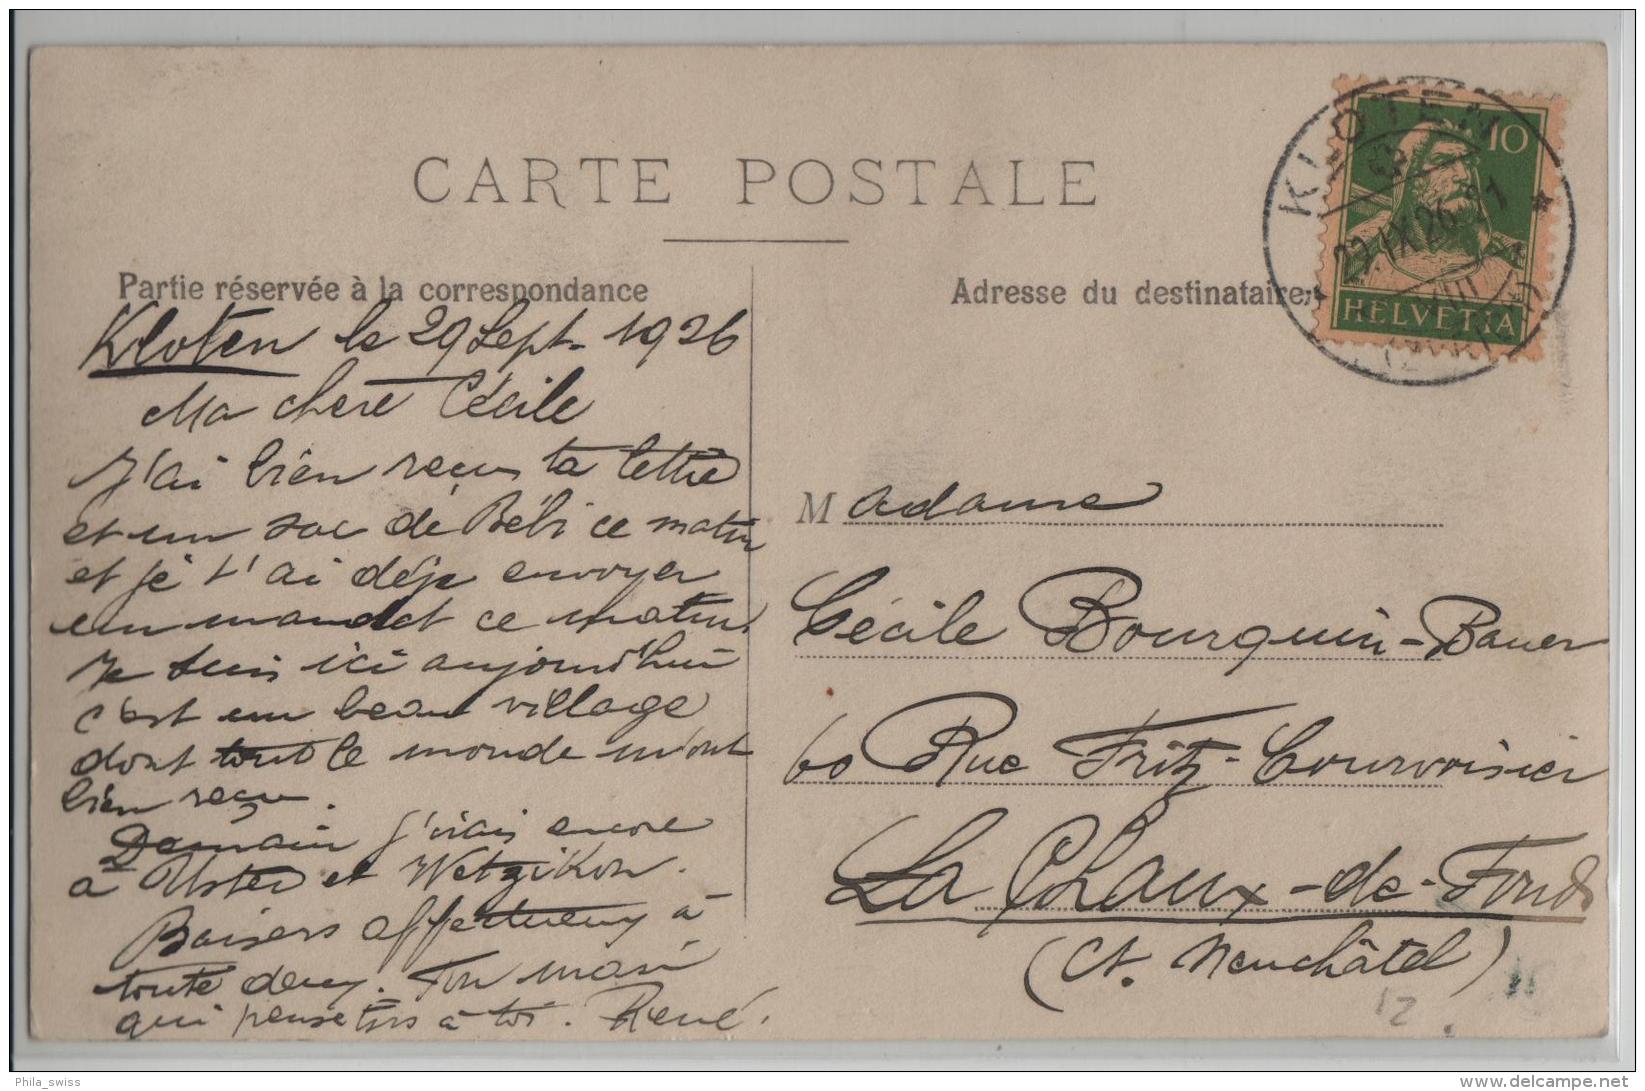 CARTE POSTALE
Partie réservée à la correspondance
Kloten le 29 Sept. 1926
Ma chère Cécile
J'ai bien reçus ta lettre
et un sac de Bébi ce matin
et je t'ai déja envoyer
un mandat ce matin.
Je suis ici aujourd'hui
c'est un beau village
dont tout le monde m'ont
bien reçu.
Demain j'irais encore
à Uster et Wetzikon.
Baisers affectueux à
toute deux. Ton mari
qui pense trs à toi. René.
Adresse du destinataire
Madame
Cécile Bourquin-Bauer
60 Rue Fritz-Courvoisier
La Chaux-de-Fonds
(Ct. Neuchâtel)
12
KLOTEN
IX.26
(ZÜRICH)
10
HELVETIA
Phila_swiss
delcampe.net